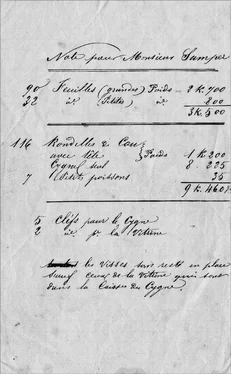 Note pour Monsieur Samper
90 Feuilles (grandes) Poids 2 K. 700
32 id (Petites) id 800
3K. 500
116 Rondelles de Cou
avec tête } Poids 1 K 200
Cygne seul 8. 225
7 Petits poissons 35
9 K. 460
5 Clefs pour le Cygne
2 id pr la Vitrine
les Visses sur reste en place
sauf ceux de la Vitrine qui sont
dans la Caisse des Cygne.